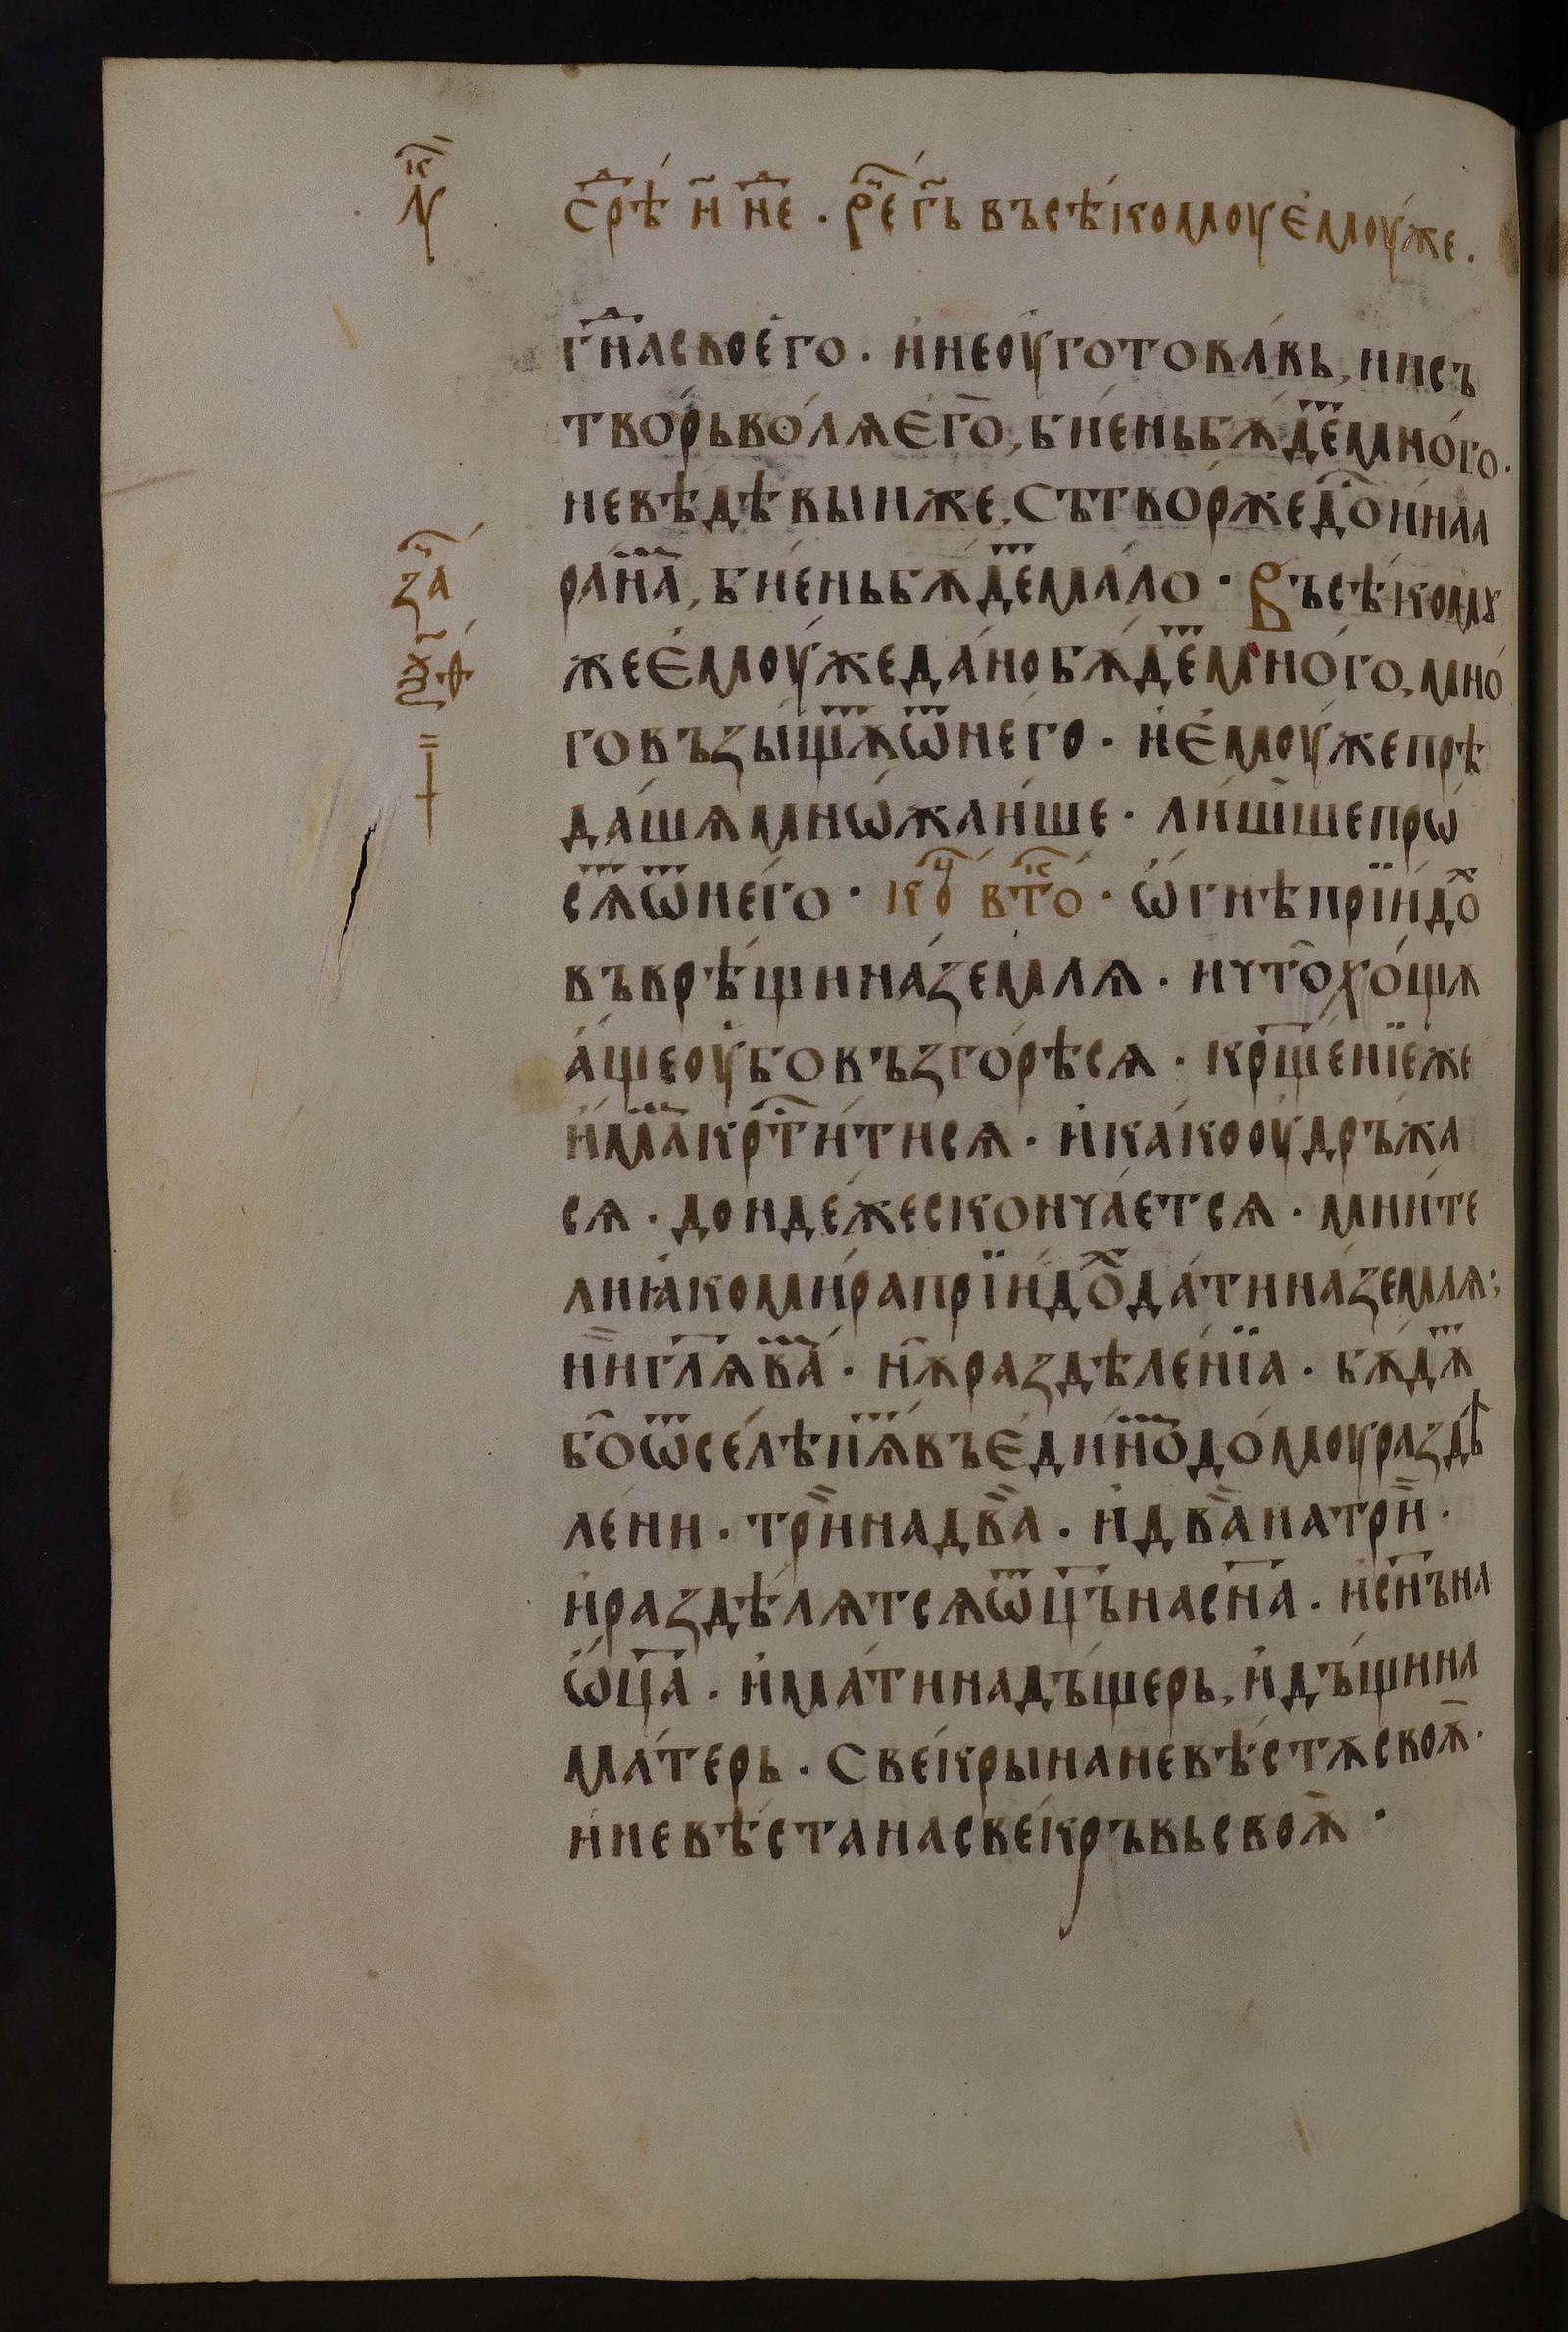 лꙋ҇ⷦ
срѣⷣ н҃ неⷣ . реⷱ г҃ь въсѣкомоу емоуже .
гнⷭ҇а своего · и неоуготовавь, ни съ
творь волѧ его, биень бѫдеⷮ много .
невѣдѣвыи же, сътворже достⷭ҇оинаа
ранаⷨ, биень бѫдеⷮ мало · Въсѣкомꙋ
же емоуже дано бѫдеⷮ много, мно
го възыщѫⷮ ѿ него · и емоуже прѣ
дашѧ множаише · лишше про
сѧⷮ ѿ него · коⷰ҇ втоⷦ҇ · ѡгнѣ прїидоⷯ
въврѣщи на землѧ · и что хощѫ
аще оубо възгорѣсѧ · кр҃щенїе же
имамⷨ крⷭ҇титисѧ · и како оудръжа
сѧ · дондеже скончаетсѧ · мните
ли ꙗко мира прїидоⷯ дати на землѧ;
ни гл҃ѧ ваⷨ · нѫ раздѣленїа · бѫдѫⷮ
бо ѿселѣ пѧⷮ въ единоⷨ домоу раздѣ
лени · три на два · и два на три ·
и раздѣлѧтсѧ ѿц҃ъ на сн҃а · и сн҃ъ на
ѡц҃а · и мати на дъщерь, и дъщи на
матерь · Свекры на невѣстѫ своѫ ·
и невѣста на свекръвь своѫ ·
заⷱ
ѯ҃ꙁ